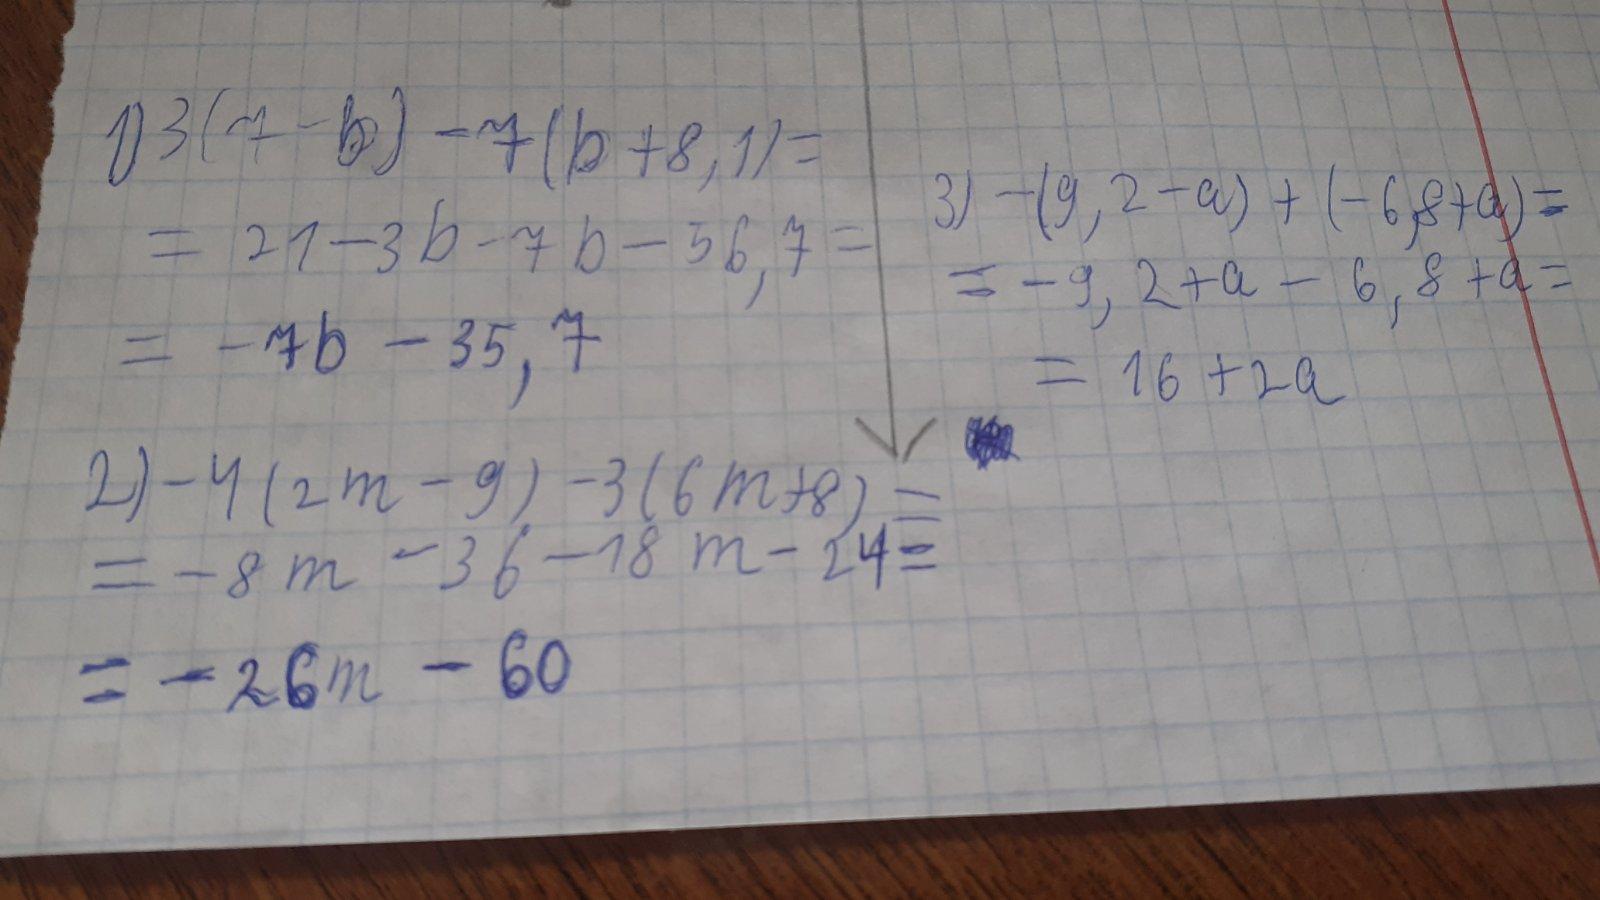 1) 3(7-b) -7(b+8,1)=
= 21-3b-7b-56,7=
= -7b-35,7
2) -4(2m-9) -3(6m+8)=
= -8m-36-18m-24=
= -26m-60
3) -(9,2-a)+(-6,8+a)=
= -9,2+a-6,8+a=
= 16+2a